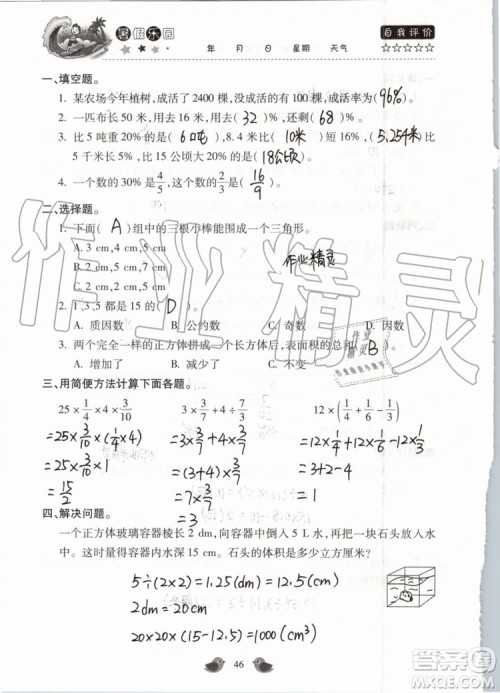 暑假乐园 年 月 日 星期 天气 自我评价
☆☆☆☆☆
一、填空题。
1. 某农场今年植树,成活了 2400 棵,没成活的有 100 棵,成活率为( 96% )。
2. 一匹布长 50 米,用去 16 米,用去( 32 )%,还剩( 68 )%。
3. 比 5 吨重 20%的是( 6吨 ),8.4 米比( 10米 )短 16%,( 5.254米 )比
5 千米长 5%,比 15 公顷大 20%的是( 18公顷 )。
4. 一个数的 30%是 4/5,这个数的 2/3 是( 16/9 )。
二、选择题。
1. 下面( A )组中的三根小棒能围成一个三角形。
A. 3 cm,4 cm,5 cm
B. 2 cm,2 cm,5 cm
C. 3 cm,2 cm,5 cm
作业精灵
2. 1,3,5 都是 15 的( D )。
A. 质因数 B. 公约数 C. 奇数 D. 因数
3. 两个完全一样的正方体拼成一个长方体后,表面积的总和( B )。
A. 增加了 B. 减少了 C. 不变
三、用简便方法计算下面各题。
25×1/4×4×3/10 3×3/7+4÷7/3 12×(1/4+1/6−1/3)
=25×3/10×(1/4×4) =3×3/7+4×3/7 =12×1/4+12×1/6−12×1/3
=25×3/10×1 =(3+4)×3/7 =3+2-4
=15/2 =7×3/7 =1
=3
四、解决问题。
一个正方体玻璃容器棱长 2 dm,向容器中倒入 5 L 水,再把一块石头放入水
中。这时量得容器内水深 15 cm。石头的体积是多少立方厘米?
5÷(2×2)=1.25(dm)=12.5(cm)
2dm=20cm
20×20×(15-12.5)=1000(cm³)
46
作业精灵
答案圈
MXQE.COM